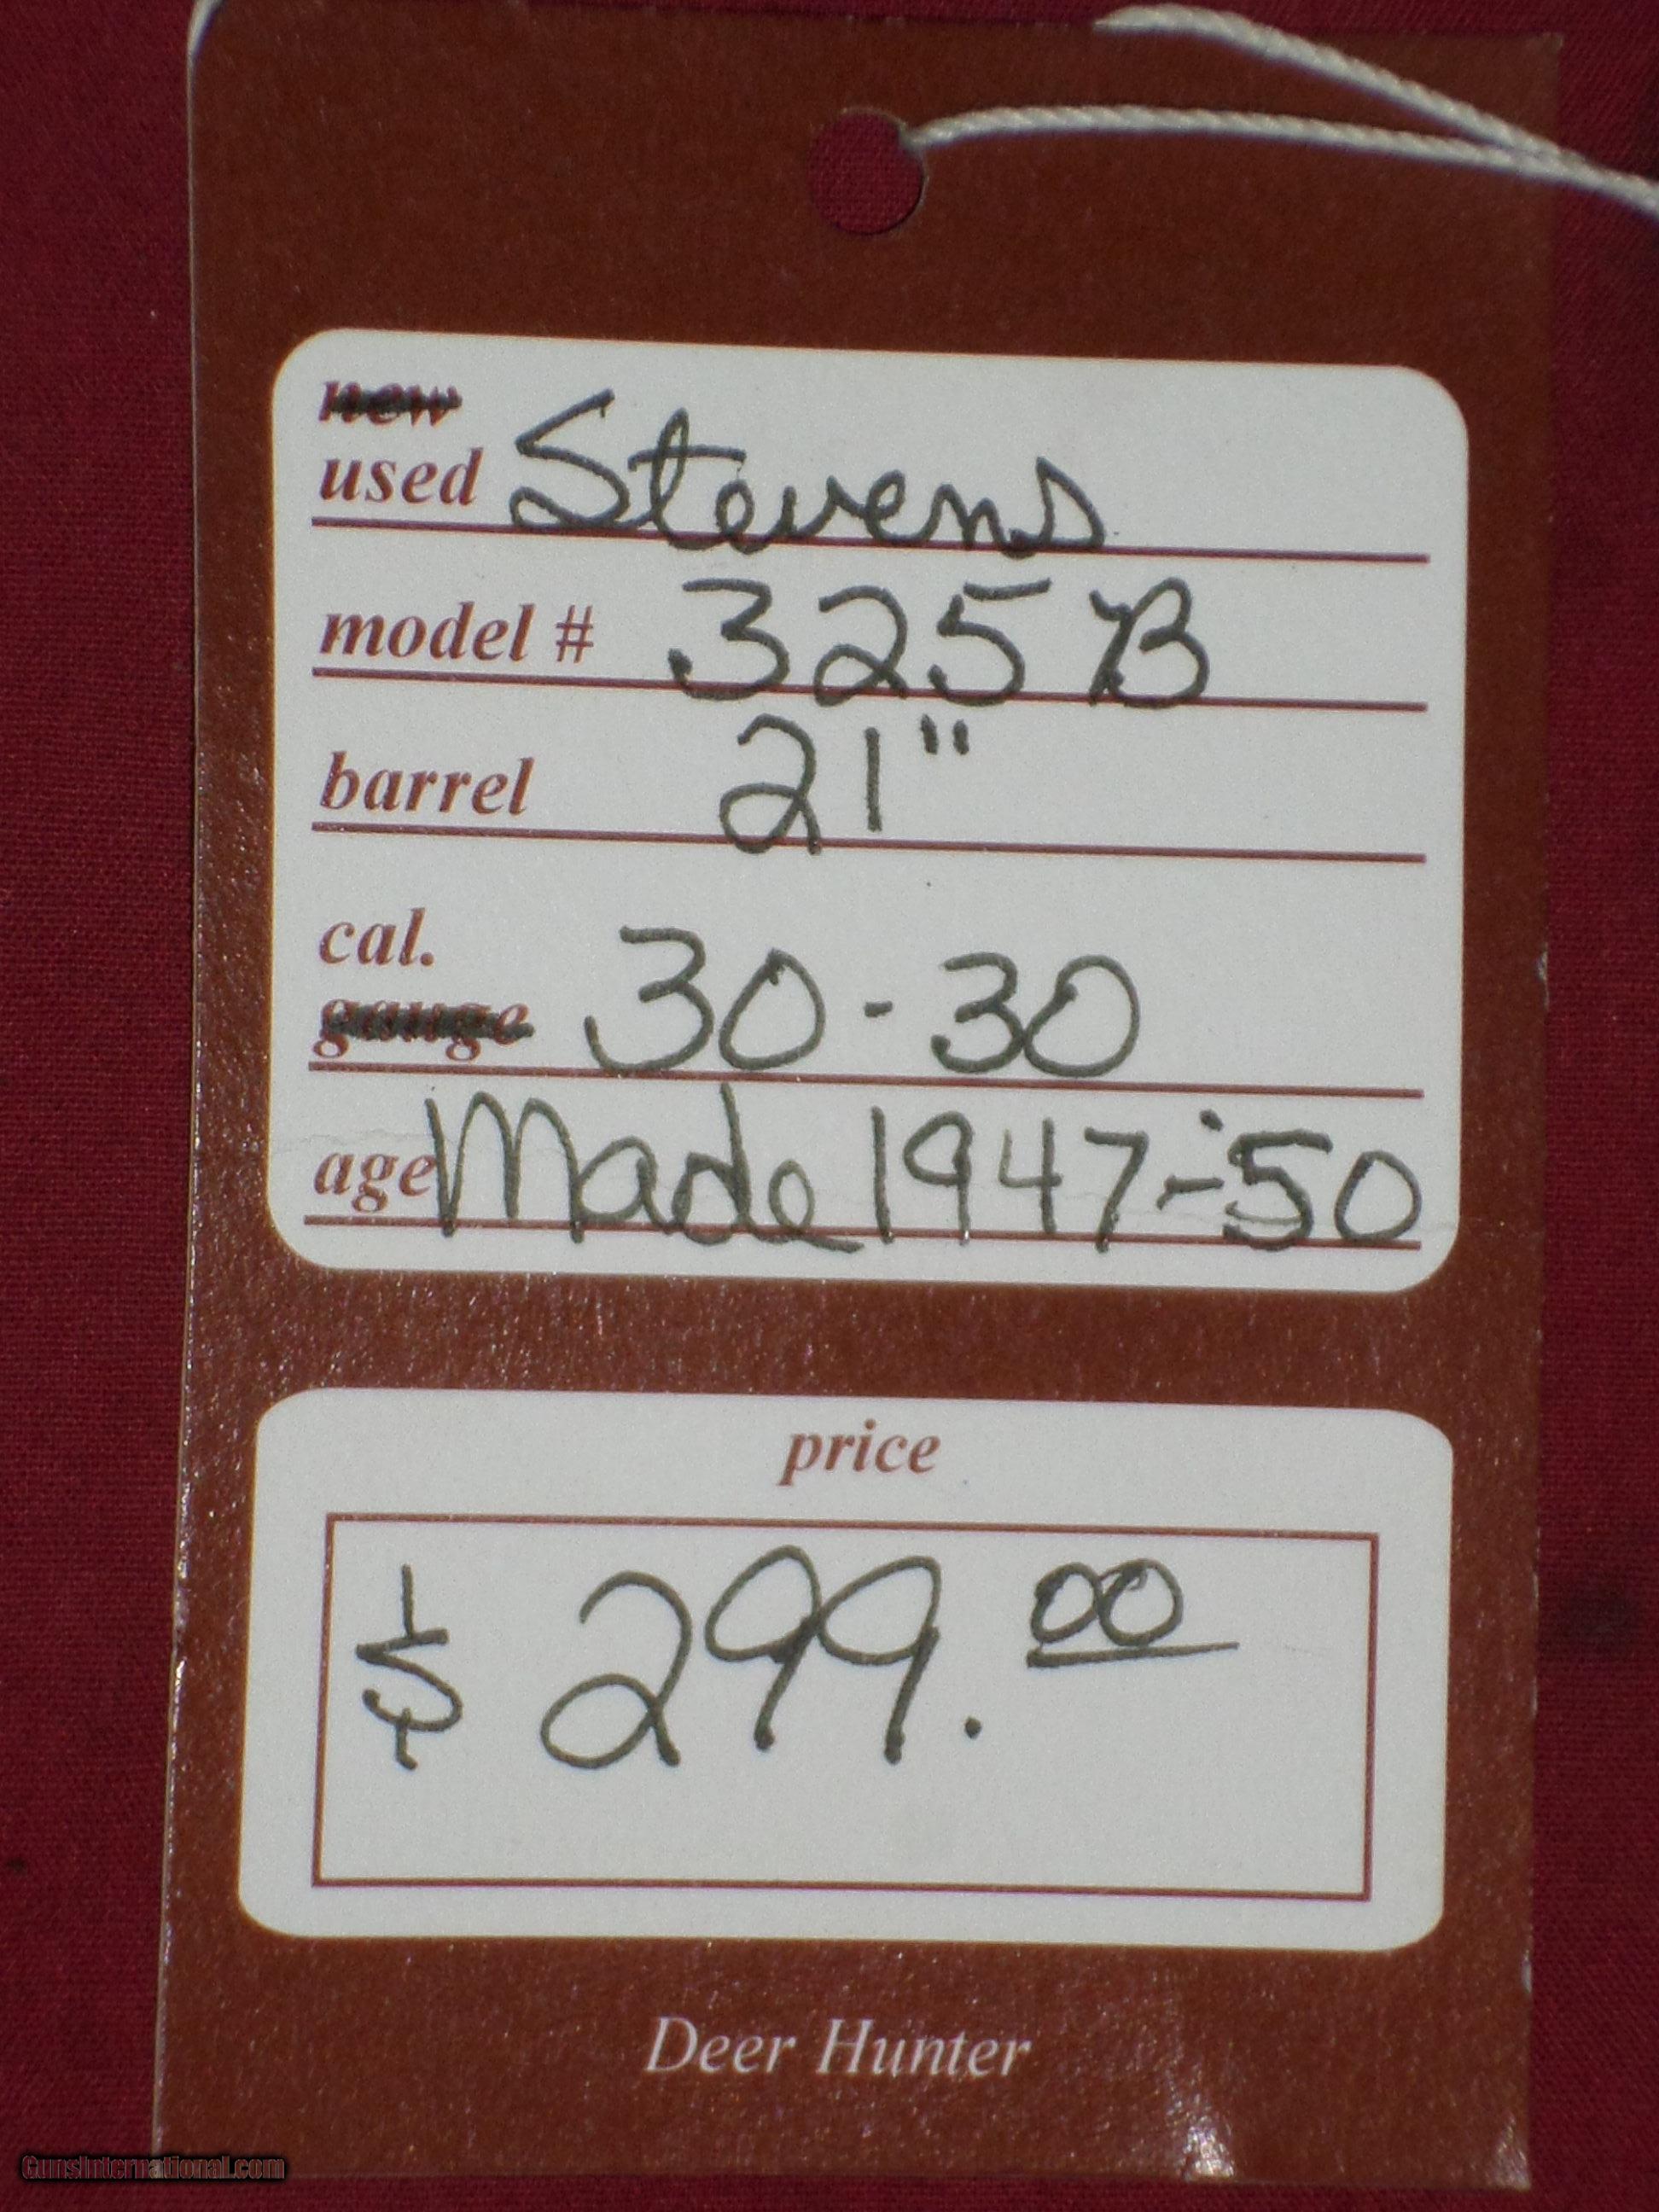 new
used Stevens
model # 325B
barrel 21"
cal.
gauge 30-30
age Made 1947-'50
price
$ 299.00
Deer Hunter
GunsInternational.com